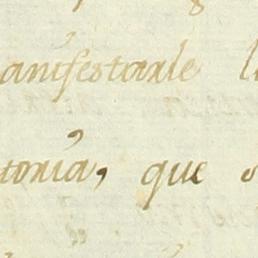 anifestarle
toria, que